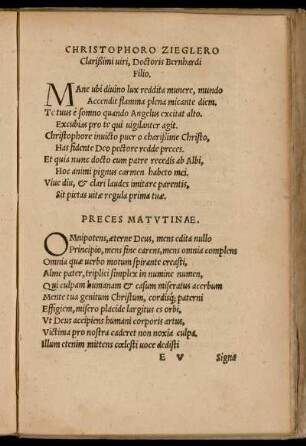 CHRISTOPHORO ZIEGLERO
Clarißimi uiri, Doctoris Bernhardi
Filio.
MAne ubi diuino lux reddita munere, mundo
Accendit flamma plena micante diem.
Te tuus è somno quando Angelus excitat alto.
Excubias pro te qui uigilanter agit.
Christophore inuicto puer o charißime Christo,
Has fidente Deo pectore redde preces.
Et quia nunc docto cum patre recedis ab Albi,
Hoc animi pignus carmen habeto mei.
Viue diu, & clari laudes imitare parentis,
Sit pietas uitæ regula prima tuæ.
PRECES MATVTINAE.
OMnipotens, æterne Deus, mens edita nullo
Principio, mens fine carens, mens omnia complens
Omnia quæ uerbo motum spirante creasti,
Alme pater, triplici simplex in numine numen,
Qui culpam humanam & casum miseratus acerbum
Mente tua genitum Christum, cordisq; paterni
Effigiem, misero placide largitus es orbi,
Vt Deus accipiens humani corporis artus,
Victima pro nostra caderet non noxia culpa.
Illum etenim mittens cœlesti uoce dedisti
E V Signa